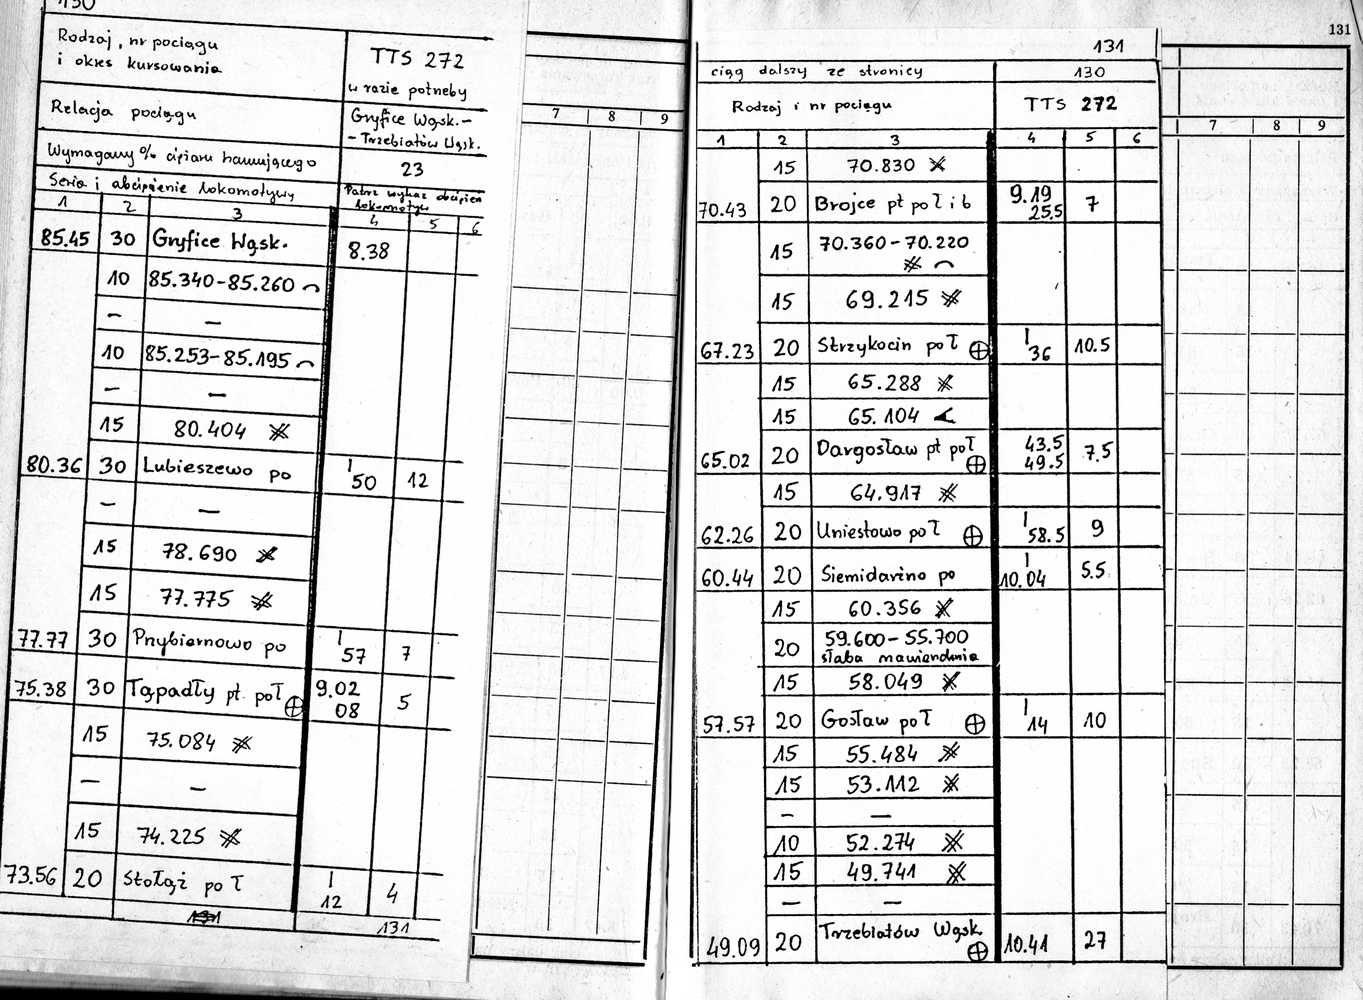 130
Rodzaj, nr pociągu
i okres kursowania
TTS 272
w razie potrzeby
Relacja pociągu
Gryfice Wąsk.-
- Trzebiatów Wąsk.
Wymagany % ciężaru hamującego
23
Seria i obciążenie lokomotywy
Patrz wykaz obciążeń
lokomotyw
1 2 3 4 5 6
85.45 30 Gryfice Wąsk. 8.38
10 85.340-85.260
— —
10 85.253-85.195
— —
15 80.404
80.36 30 Lubieszewo po | 50 12
— —
15 78.690
15 77.775
77.77 30 Przybiernowo po | 57 7
75.38 30 Tąpadły pt poł 9.02 5
08
15 75.084
— —
15 74.225
73.56 20 Stołąż po ł | 12 4
131
131
7 8 9
131
131
ciąg dalszy ze stronicy 130
Rodzaj i nr pociągu TTS 272
1 2 3 4 5 6
7 8 9
15 70.830
70.43 20 Brojce pt poł i b 9.19 7
25,5
15 70.360-70.220
15 69.215
67.23 20 Strzykocin poł | 36 10.5
15 65.288
15 65.104
65.02 20 Dargosław pt poł 43.5 7.5
49.5
15 64.917
62.26 20 Uniestowo poł | 58.5 9
60.44 20 Siemidarżno po | 10.04 5.5
15 60.356
20 59.600-55.700
słaba nawierzchnia
15 58.049
57.57 20 Gosław poł | 14 10
15 55.484
15 53.112
— —
10 52.274
15 49.741
— —
49.09 20 Trzebiatów Wąsk. 10.41 27